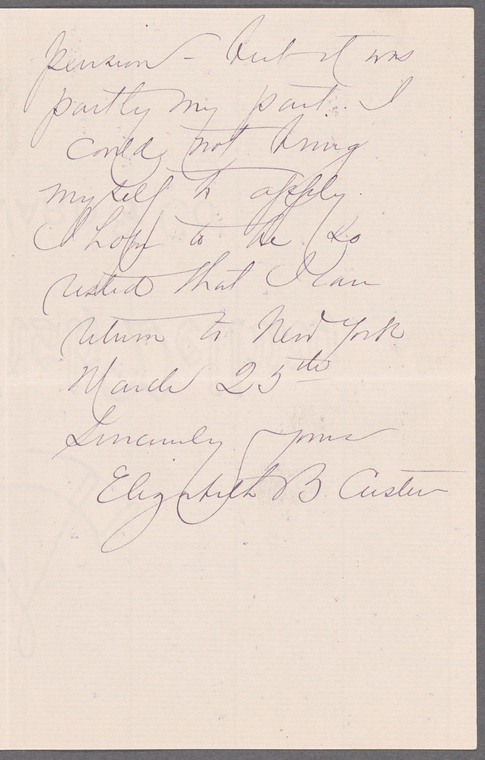 pension – but it was
partly my part. I
could not bring
myself to apply.
I hope to be so
rested that I can
return to New York
March 25th
Sincerely yours
Elizabeth B Custer